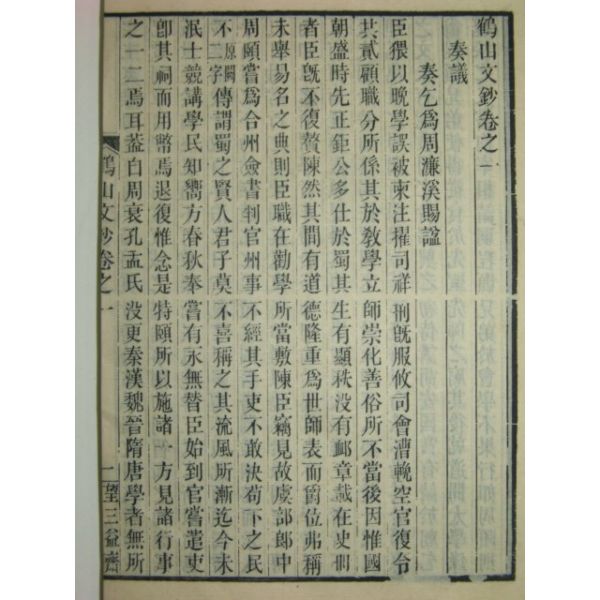 鶴山文鈔卷之一
奏議
奏乞爲周濂溪賜諡
臣猥以晚學誤被柬注擢司祥刑旣服攸司會漕輓空官復令
共貳顧職分所係其於敎學立師崇化善俗所不當後因惟國
朝盛時先正鉅公多仕於蜀其生有顯秩没有邮章載在史册
者臣旣不復贅陳然其間有道德隆重爲世師表而爵位弗稱
未舉易名之典則臣職在勸學所當敷陳臣竊見故虞部郎中
周頤嘗爲合州僉書判官州事不經其手吏不敢決苟下之民
不原闕二字傳謂蜀之賢人君子莫不喜稱之其流風所漸迄今未
泯士競講學民知嚮方春秋奉嘗有永無替臣始到官嘗遣吏
卽其祠而用幣焉退復惟念是特頤所以施諸一方見諸行事
之一二焉耳葢自周衰孔孟氏没更秦漢魏晉隋唐學者無所
鶴山文鈔卷之一
一
望三益齋